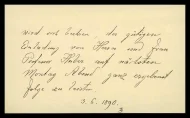 wird sich beehren, der gütigen
Einladung von Herrn und Frau
Professor Huber auf nächsten
Montag Abend ganz ergebenst
Folge zu leisten.
3. 6. 1890.